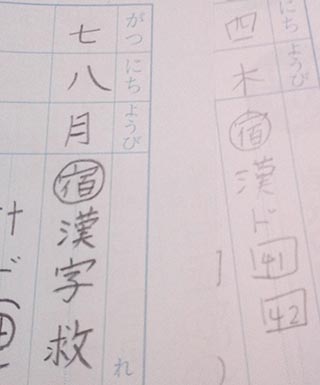 にち ようび
四 木 宿 漢ド 41 42
がつ にち ようび れ
七 八 月 宿 漢字 救